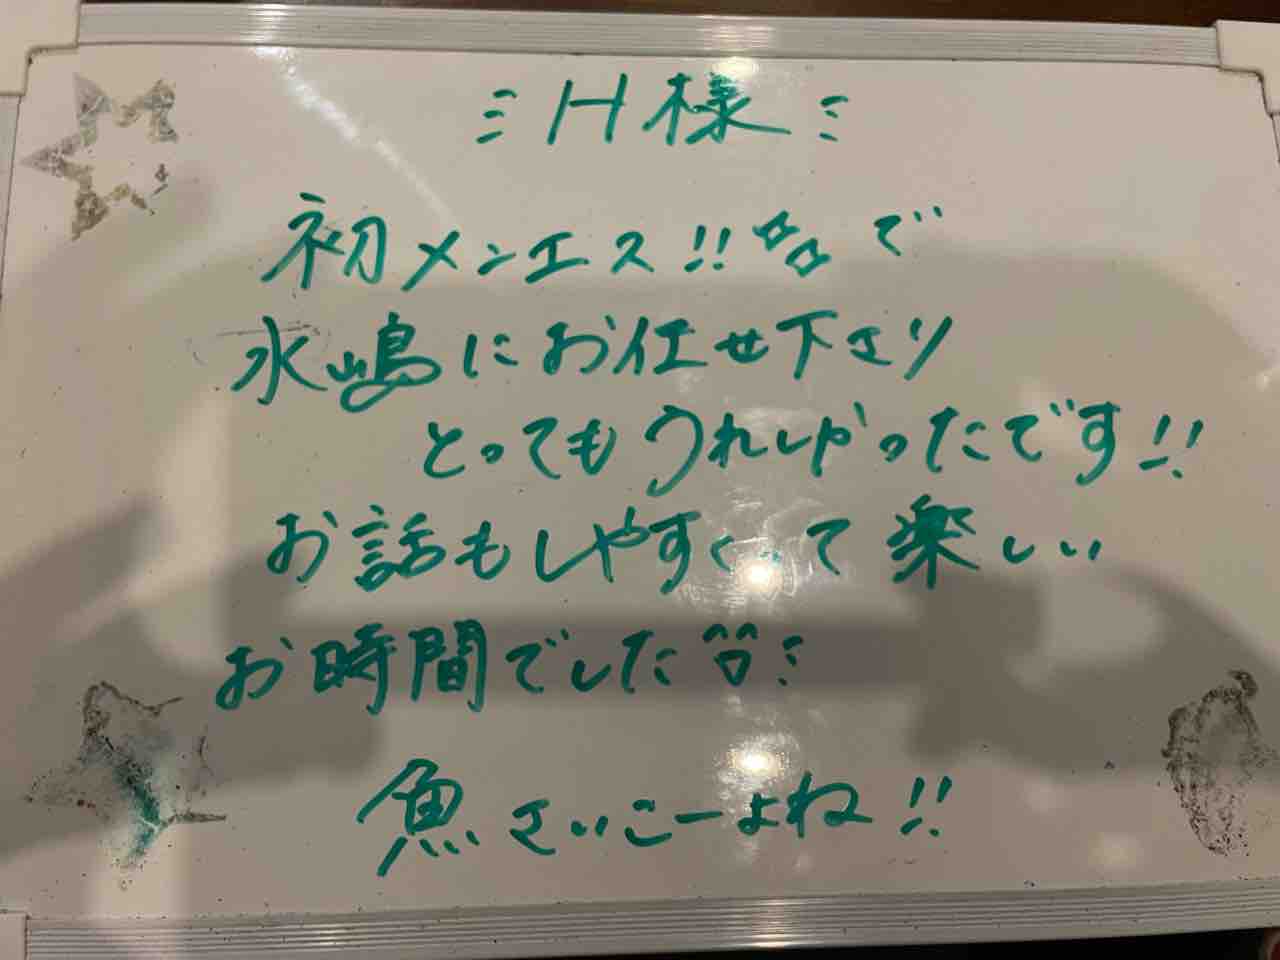 H様
初メンエス!!で
水嶋にお任せ下さり
とってもうれしかったです!!
お話もしやすくって楽しい
お時間でした
魚さいこーよね!!